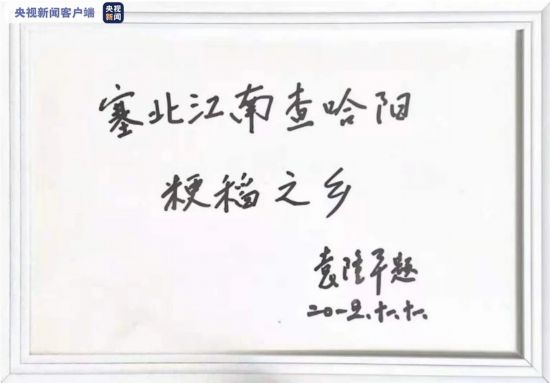 央视新闻客户端
央视
新闻
塞北江南查哈阳
粳稻之乡
袁隆平题